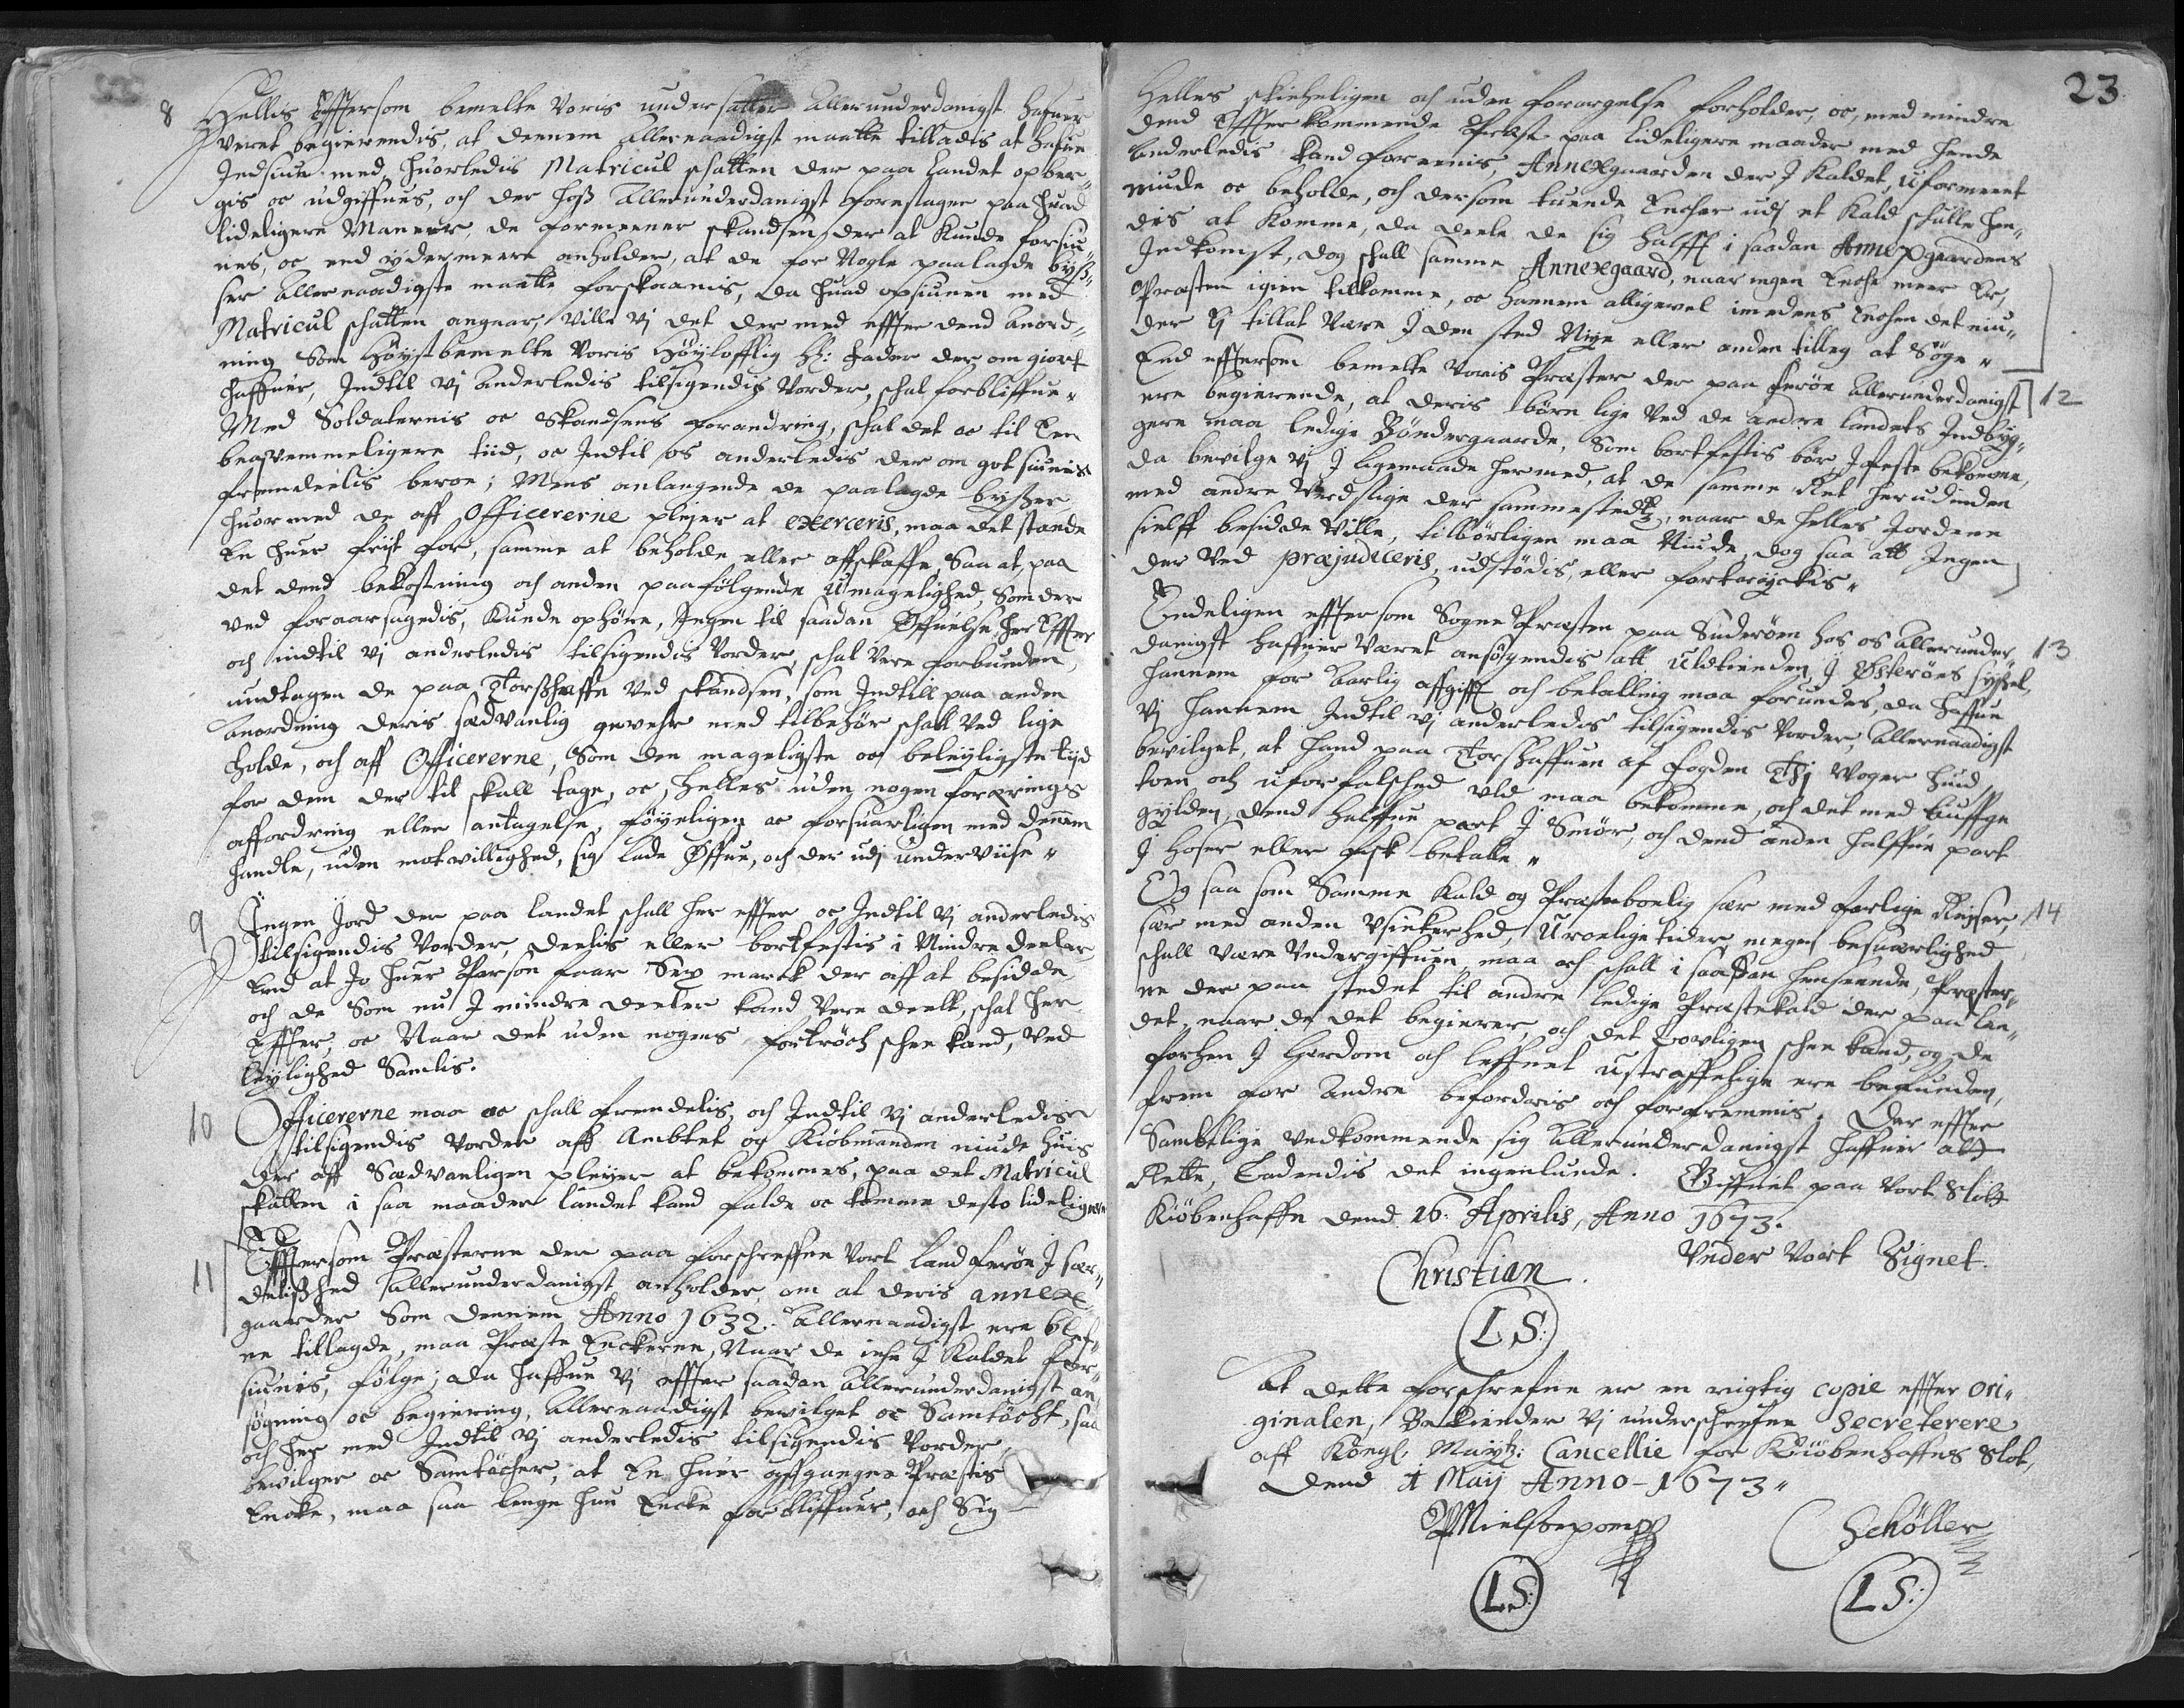 8 Hellis Effterson bemelte Voris undersatter allerunderdanigst hafuer
veret begierendis, at dennem allernaadigst maatte tilladis at hafue
Indseun med, huorledis Matricul schatten der paa Landet opber„
gis oc udgiffues, och der hoß allerunderdanigst forestager paa huad
lideligere Maneer, de formeener skandsen der at kunde forsiu„
nes, oc end ydermeere anholder, at de for Nogle paalagde byß„
ser allernaadigste maatte forskaanis, da huad opsiunen med
Matricul schatten angaar, Ville Vj det der med effter dend Anord„
ning Som Høystbemelte Voris Høyloflig H: Fader der om giort
haffuer, Indtil Vj anderledis tilsigendis Vorder, schal forbliffue„
Med Soldaternis oc Skandsens forandring, schal det oc til Een
beqvemmeligere tiid, oc Indtil os anderledis der om got siunis
fremdeelis beroe; Mens anlangende de paalagde bysser
huormed de aff Officererne plejer at exerceris, maa det stande
En huer frijt for, samme at beholde eller affskaffe, Saa at, paa
det dend bekostning och anden paafølgende Umagelighed, Som der
ved foraarsagedis, Kunde ophøre, Ingen til saadan Øffuelse her Effter
och indtil Vj anderledis tilsigendis Vorder, schal Vere forbunden,
undtagen de paa Torßhaffn Ved skandsen, som Indtill paa anden
Anordning deris sædvanlig gewehr med tilbehør schall Ved lige
holde, och aff Officererne, Som den mageligste oc beleyligste tijd
for dem der til skall tage, oc, Helles uden nogen forprings
affordring eller antagelse, føyeligen oc forsuarligen med dennem
handle, uden motvillighed, sig lade Øffue, och der udj underviise„
9 Ingen Jord der paa Landet schall her effter oc Indtil Vj anderledis
tilsigendis Vorder, deelis eller bortfestis i Mindre deeler
End at Jo huer Person faar Sex marck der aff at besidde
och de Som nu I mindre deeler kand Vere deelt, schal her
Effter, oc Naar det uden nogens fortrøch schee kand, Ved
leylighed Samlis.
10 Officererne maa oc schall fremdelis, och Indtil Vj anderledis
tilsigendis Vorder aff Ambtet og Kiøbmanden niude huis
der aff Sædvanligen pleyer at bekommes, paa det Matricul
skatten i saa maader landet kand falde oc komme desto lideligere
11 Efftersom Præsterne der paa forschreffne Vort Land Ferøe I sær„
delißhed allerunderdanigst anholder, om at deris annexe„
gaarder Som dennem Anno 1632. Allernaadigst ere blef„
ne tillagde, maa Præste Enckerne, Naar de iche I Kaldet for„
siunis, følge; da haffue Vj effter saadan allerunderdanigst an„
søgning oc begiering, allernaadigst bevilget oc Samtøcht, saa
och her med Indtil Vj anderledis tilsigendis Vorder,
bevilger oc Samtøcher, at En huer affgangen Præstis
Encke, maa saa lenge hun Encke forbliffuer, och Sig
23
Helles skicheligen och uden forargelse forholder, oc, med mindre
dend Effterkommende Præst paa lideligere maader med hende
anderledis kand foreenis, Annexgaarden der I Kaldet, Uformeent
niude oc beholde, och dersom tuende Encher udj et Kald schulle hen„
des at Komme, da deele de sig halfft i saadan Annexgaardens
Indkomst, dog schall samme Annexgaard, naar ingen Enche meer Er,
Præsten igien tilkomme, oc hannem alligevel imedens Enchen det niu„
der Ej tillat Være I den sted Nye eller anden tilleg at Søge„
End efftersom bemelte Voris Præster der paa Ferøe allerunderdanigst 12
ere begierende, at deris børn lige Ved de andre Landets Indbyg„
gere maa ledige Bøndergaarde, Som bortfestis bør, I feste bekomme,
da bevilge Vj I ligemaade hermed, at de samme Ret her udinden
med andre Verdslige der sammestedtz, naar de Helles Jordene
sielff besidde Ville, tilbørligen maa Niude, dog saa att Ingen
der Ved præjudiceris, udstødis, eller fortrøckis„
Endeligen efftersom Sogne Præsten paa Suderøen hos os allerunder 13
danigst haffuer Været ansøgendis att Uldtienden, I Østerøes syssel,
hannem for Aarlig affgifft och betalling maa forundes, da haffue
Vj hannem Indtil Vj anderledis tilsigendis Vorder, allernaadigst
bevilget, at hand paa Torshaffuen af Fogden Thj Woger hand
toen och uforfalsched Uld maa bekomme, och det med tuffge
gylden, dend halffue part I Smør, och dend anden halffue part
I hoser eller fisk betalle„
Og saa som Samme Kald og Præsteboelig sær med farlige Rejser, 14
sær med anden Usickerhed, Uroelige tider megen besuærlighed
schall Være Undergiffuen maa och schall i saadan henseende, Præster„
ne der paa stedet til andre ledige Præstekald der paa lan„
det, naar de det begierer, och det Lovligen schee kand, og de
forhen I Lærdom och leffnet Ustraffelige ere befunden,
frem for andre befordris och forfremmis. Der effter
Samtlige Vedkommende sig allerunderdanigst haffuer att
Rette, Ladendis det ingenlunde. Giffuet paa Vort Slot
Kiøbenhaffn dend 16. Aprilis, Anno 1673.
Under Vort Signet.
Christian.
L S:
At dette forschrefne er en rigtig copie effter ori„
ginalen, Bekiender Vj underschrefne Secreterere
aff Kongl. Mayts: Cancellie for Kiøbenhaffns Slot,
dend 1 Maij Anno – 1673„
Schøller
L S:
L S: